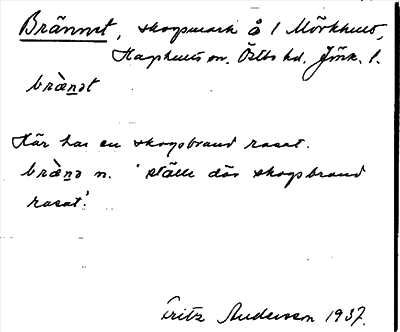 Brännet, skogsmark å 1 Mörkhult,
Hagshults sn. Östbo hd. Jönk. l.
bræ̀nət
Här har en skogsbrand rasat.
bræ̀nə n. 'ställe där skogsbrand
rasat'.
Fritz Andersson 1937.